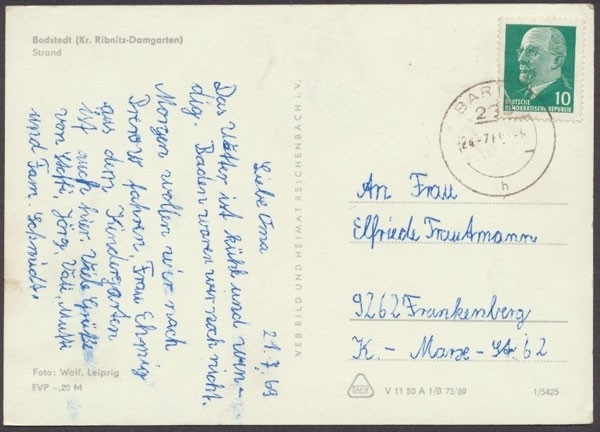 Bodstedt (Kr. Ribnitz-Damgarten)
Strand
21.7.69
Liebe Oma
Das Wetter ist kühl und win-
dig. Baden waren wir noch nicht.
Morgen wollen wir nach
Prerow fahren, Frau Ehmig
aus dem Kindergarten
ist auch hier. Viele Grüße
von Steffi, Jörg, Vati, Mutti
und Fam. Schmidt.
Foto: Wolf, Leipzig
EVP -,20 M
VEB BILD UND HEIMAT REICHENBACH i. V.
DEUTSCHE
DEMOKRATISCHE REPUBLIK
10
BART
24.-7.
h
An Frau
Elfriede Trautmann
9262 Frankenberg
K.- Marx - Str. 62
V 11 50 A 1/B 75/69
1/5425